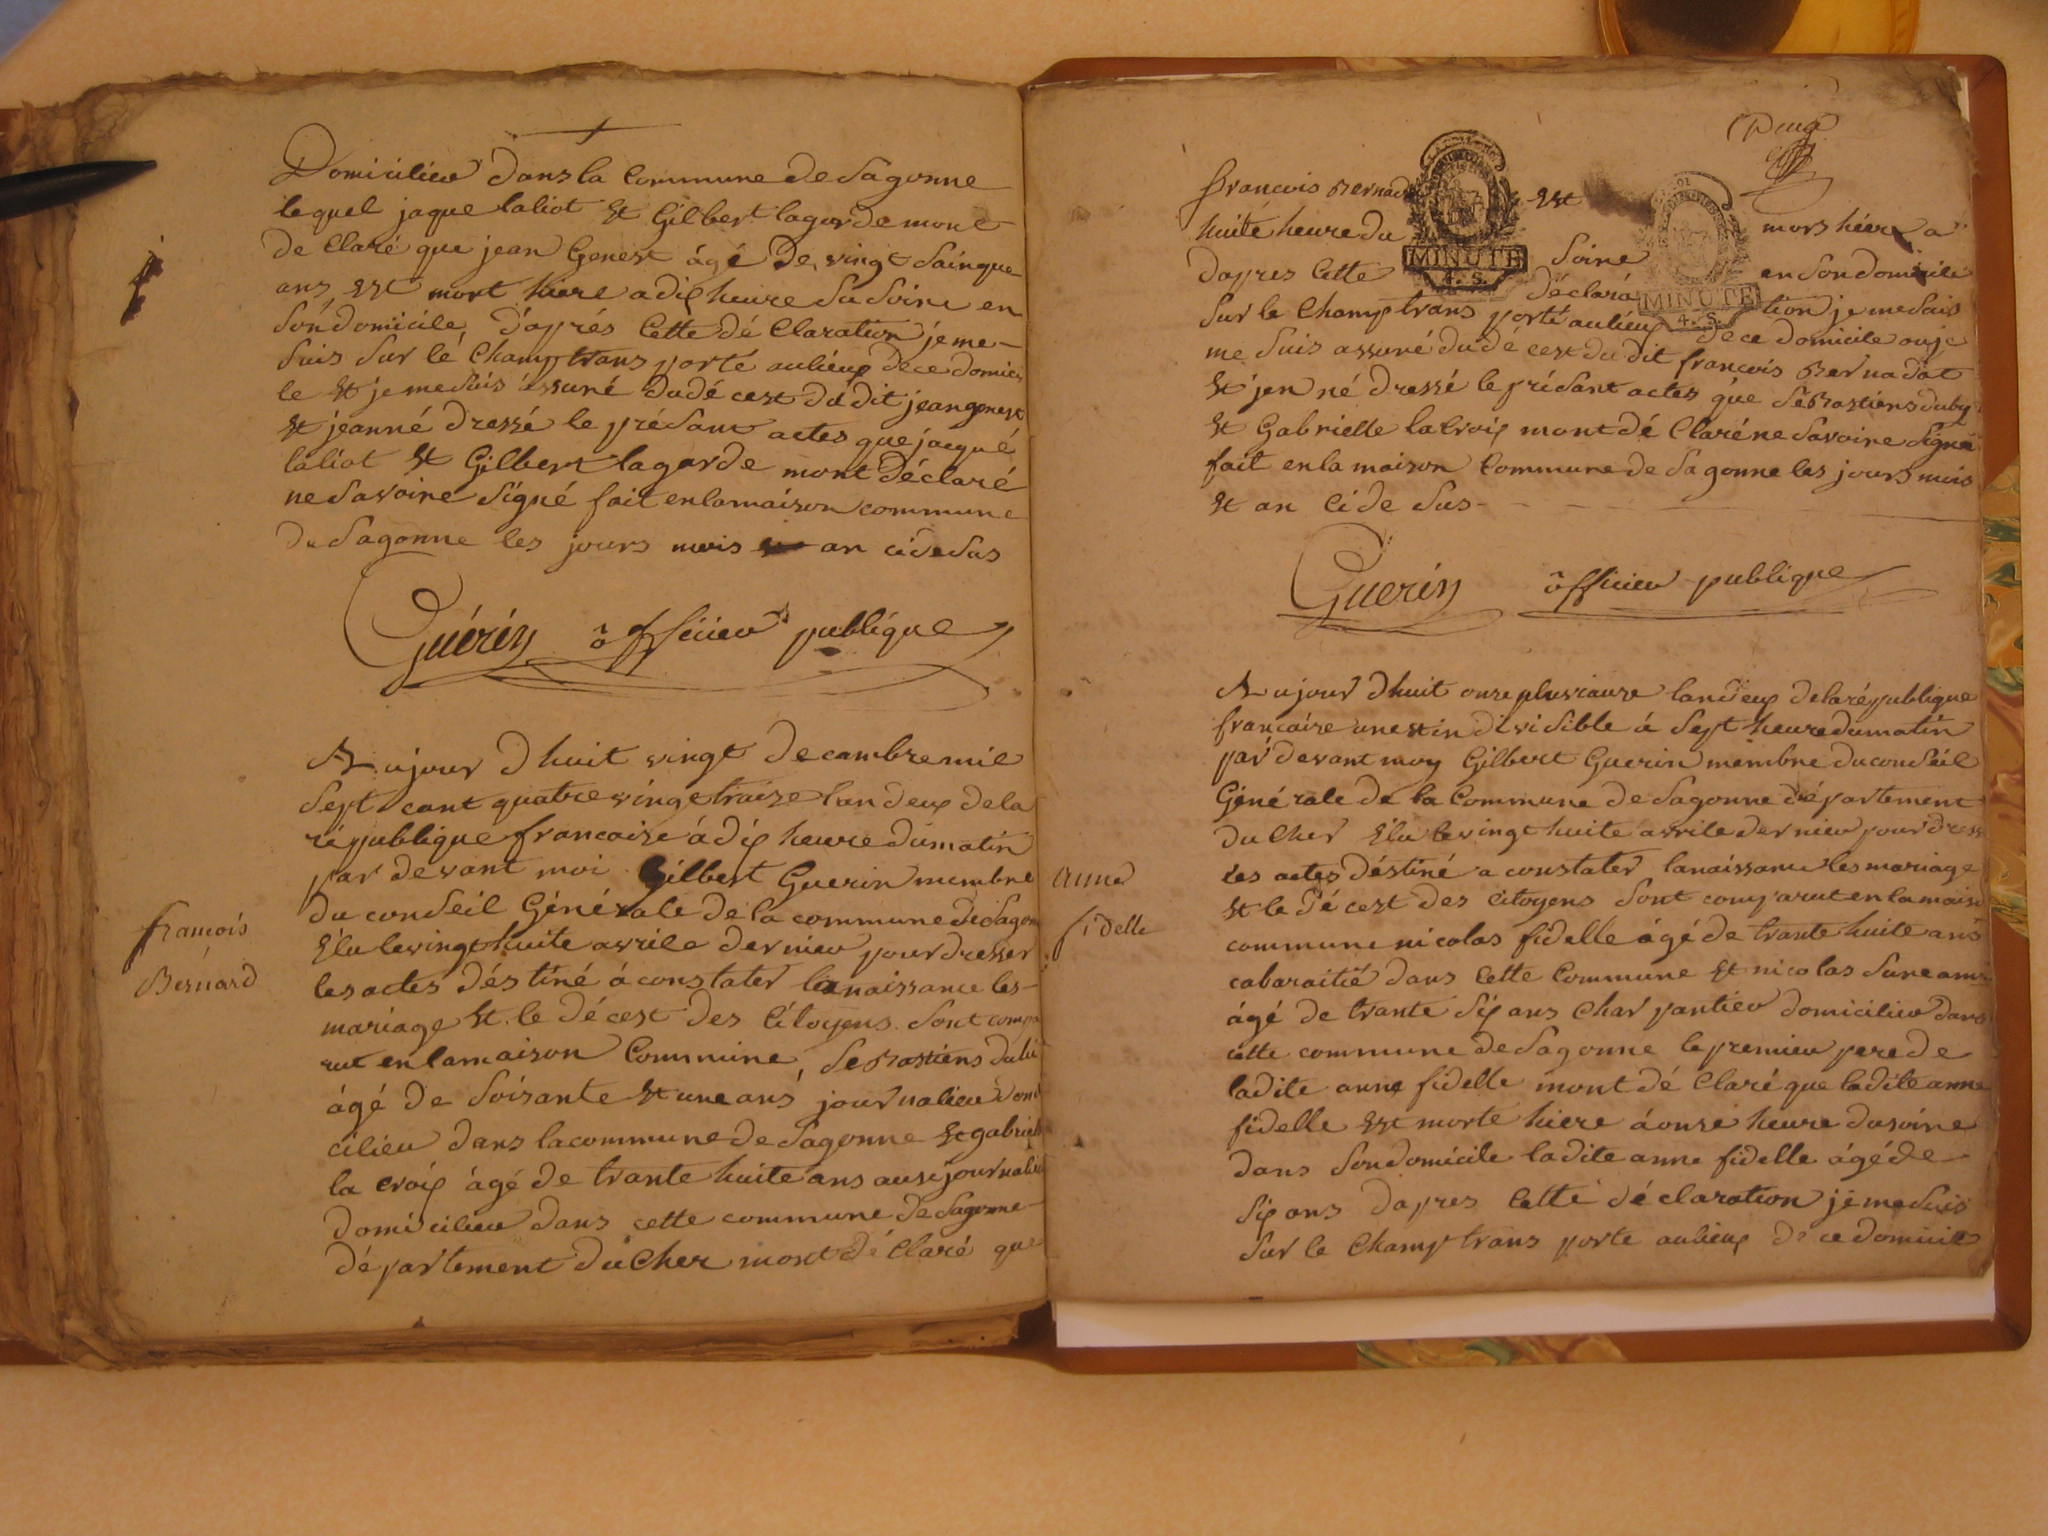 Domicilieu dans la Commune de Sagonne
lequel jaque laliot et Gilbert lagarde mont
de Claré que jean Genest ágé de vingt Sainque
ans est mort hiere a dix heure du Soire en
Son domicile, d'aprés Cette dé Claration je me
Suis Sur lé Champ trans porté au lieux de ce domici
le et je me suis assuré du dé cest du dit jean genest
et jean né dressé le présant actes que jacque
laliot et Gilbert lagarde mont déclaré
ne Savoire Signé fait en la maison commune
de Sagonne les jours mois et an ci de Sus
Guérin officieu publique
François
Bernard
Aujour dhuit vingt decambre mil
Sept cant quatre vingt traize lan deux de la
république francaise á dix heure du matin
par devant moi Gilbert Guerin membre
du conseil Générale de la commune de Sagon
élu le vingt huite avrile dernieu pour dresser
les actes déstiné á constater la naissance les
mariage et le dé cest des Citoyens Sont compa
rut en la maison Commune, Sebastiens dubi
ágé de Soisante et une ans journalieu domi
cilieu dans la commune de Sagonne et gabriele
la croix ágé de trante huite ans ausi journalieu
domicilieu dans cette commune de Sagonne
département du Cher mont dé Claré que
Puig
francois Bernadat est mors hiere a
huite heure du Soire en Son domicile
dapres Cette déclaration je me suis
MINUTE
4. S.
MINUTE
4. S.
Sur le Champ trans porté au lieux de ce domicile ou je
me Suis assuré du dé cest du dit francois Bernadat
et jen né dressé le présant actes que Sebastiens duby
et Gabrielle la Croix mont dé Claré ne Savoire Signé
fait en la maison Commune de Sagonne les jours mois
et an Ci de Sus
Guerin officieu publique
anne
fidelle
Aujour dhuit onze pluviause lan deux de la république
francaise une et in divisible á Sept heure du matin
par devant moy Gilbert Guerin membre du conseil
Générale de la Commune de Sagonne département
du Cher élu le vingt huite avrile dernieu pour dress
les actes déstiné a constater la naissance les mariage
et le dé cest des Citoyens Sont comparut en la maison
commune nicolas fidelle ágé de trante huite ans
cabaraitié dans Cette Commune et nicolas
ágé de trante Six ans Charpantieu domicilieu dans
cette commune de Sagonne le premieu pere de
ladite anne fidelle mont dé Claré que ladite anne
fidelle est morte hiere á onse heure du soire
dans Son domicile ladite anne fidelle ágé de
Six ans dapres Cette déclaration je me suis
Sur le Champ trans porte au lieux de ce domicile